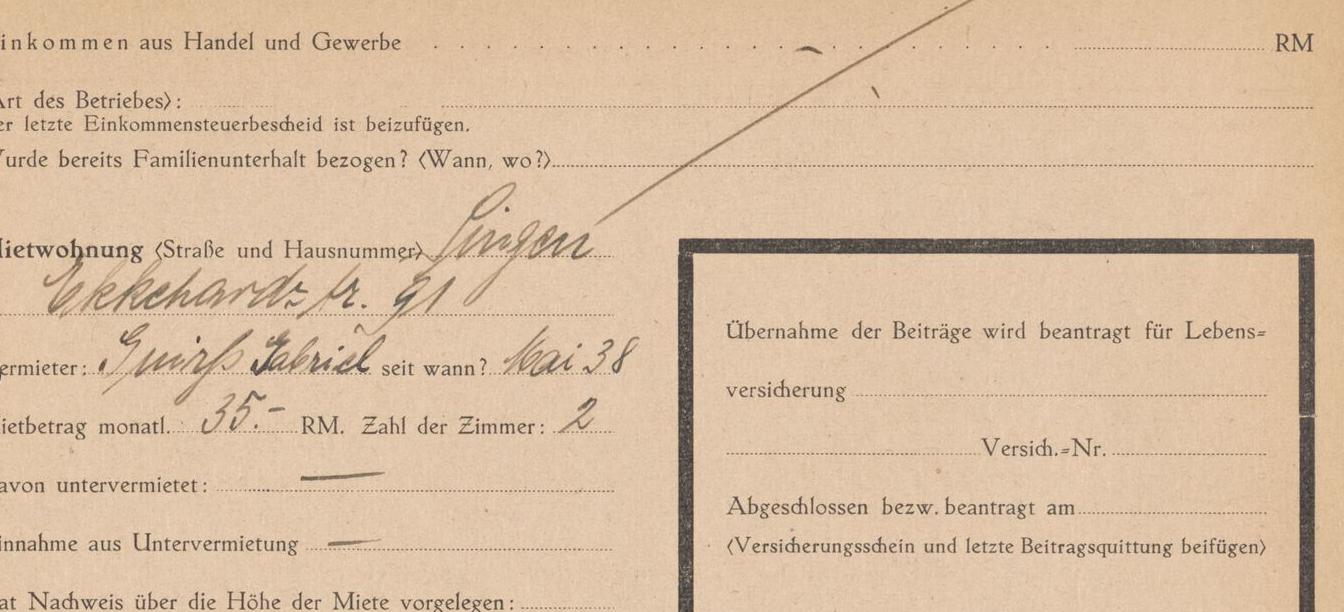 inkommen aus Handel und Gewerbe . . . . . . . . . . RM
rt des Betriebes):
er letzte Einkommensteuerbescheid ist beizufügen.
urde bereits Familienunterhalt bezogen? (Wann, wo?)
ietwohnung (Straße und Hausnummer) Singen
Ekkehardstr. 91
ermieter: Gabriel seit wann? Mai 38
ietbetrag monatl. 35.- RM. Zahl der Zimmer: 2
avon untervermietet: —
innahme aus Untervermietung —
at Nachweis über die Höhe der Miete vorgelegen:
Übernahme der Beiträge wird beantragt für Lebens=
versicherung
Versich.=Nr.
Abgeschlossen bezw. beantragt am
(Versicherungsschein und letzte Beitragsquittung beifügen)